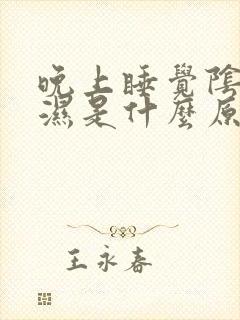 晚上睡覺陰
濕是什麼原
王永春